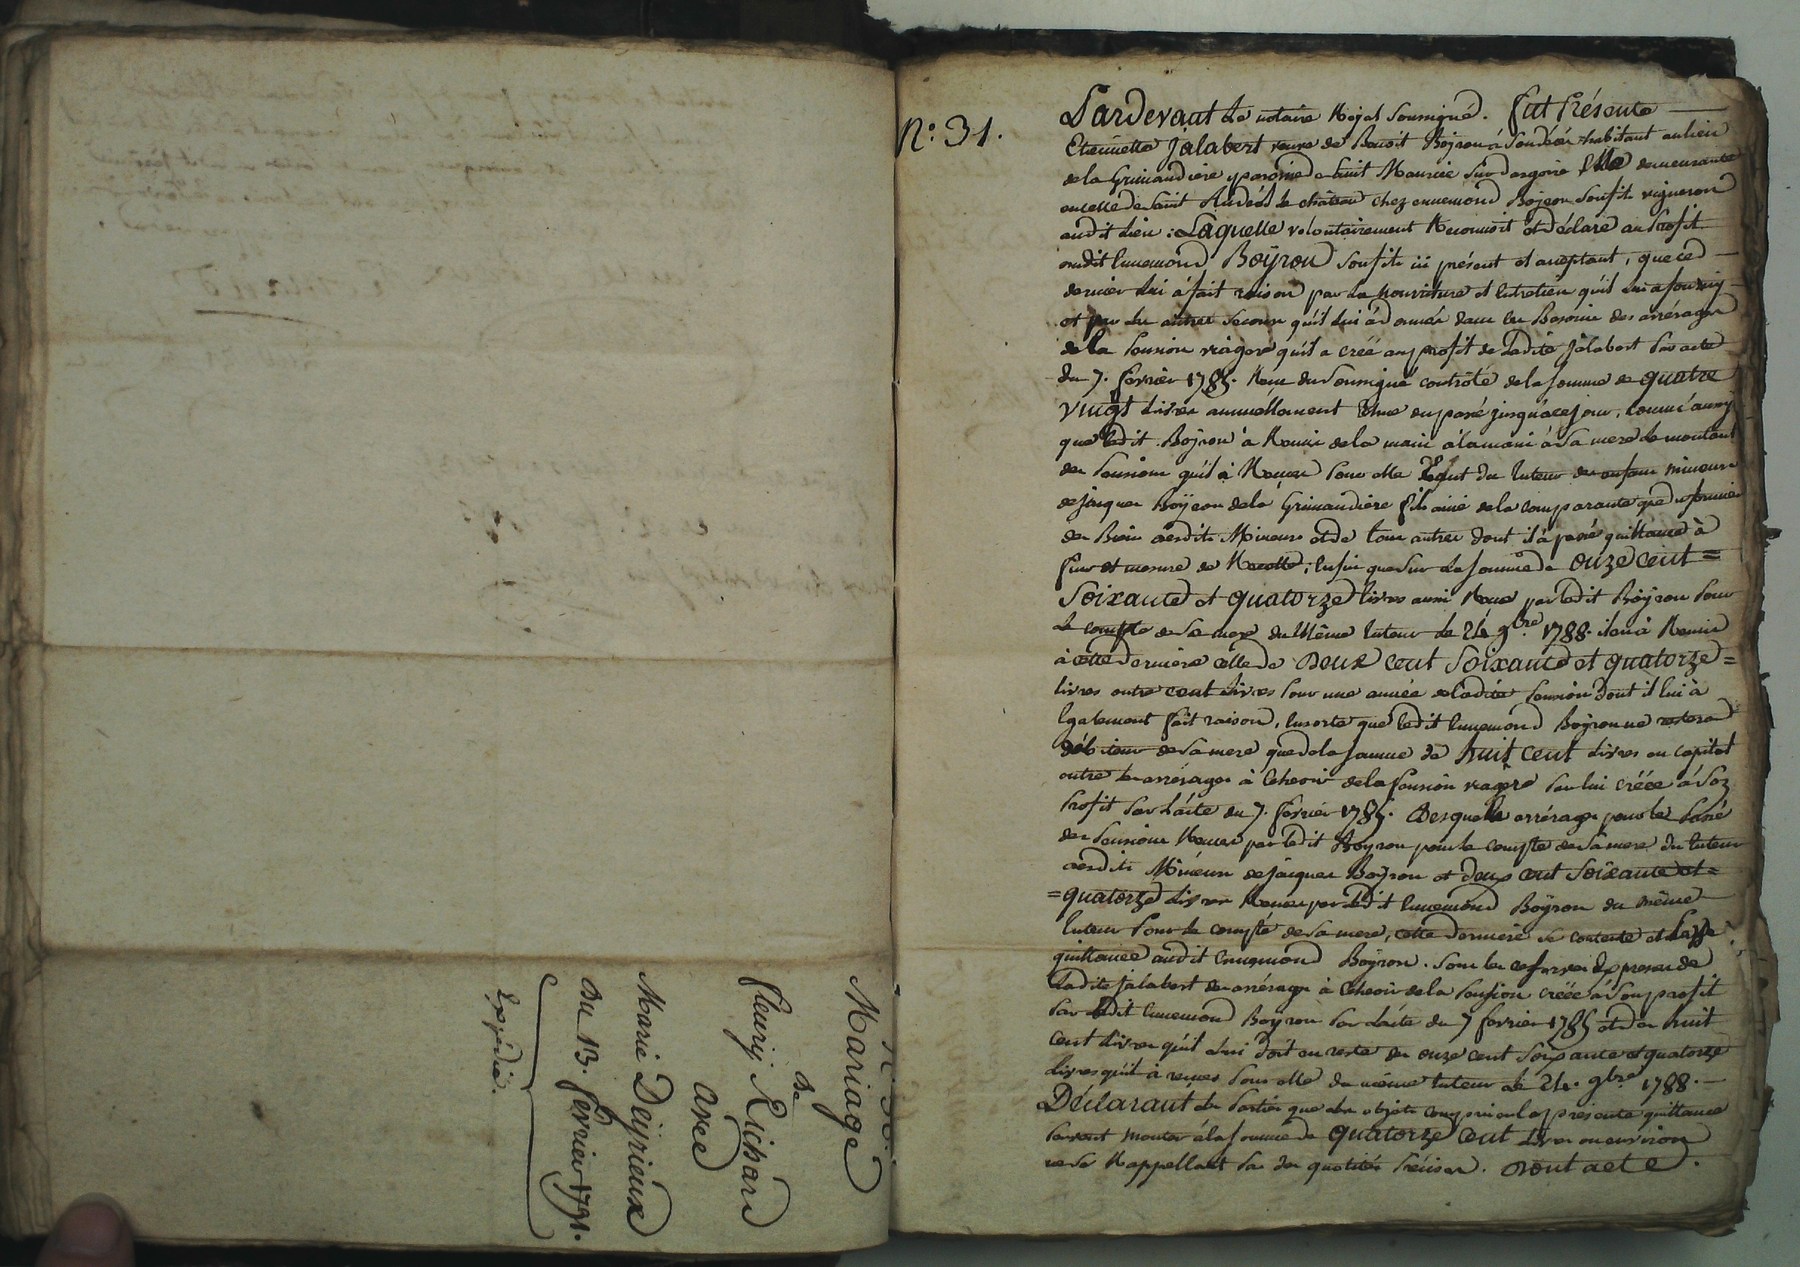 N° 30.
Mariage
de
fleury Richard
avec
Marie Deyrieux
du 13. fevrier 1791.
Expédié.
N° 31.
Pardevant Le notaire Royal soussigné. fut Présente
Etiennette Jalabert veuve de Benoit Boyron à son décès habitant au lieu
de la Grimaudiere paroisse de Saint Maurice sur dargoire Elle demeurante
en celle de Saint Andéol le château chez ennemond Boyron son fils vigneron
audit Lieu : Laquelle volontairement Reconnoit et déclare au Profit
dudit Ennemond Boÿron son fils ici présent et acceptant, que ce
dernier lui à fait raison par la nourriture et Entretien qu'il lui a fourny
et par les autres secours qu'il lui à donnés dans les Besoins des arrérages
de la Pension viagere qu'il a créé au profit de Ladite Jalabert Par acte
du 7. fevrier 1785. Recu du Soussigné controlé de la somme de quatre
vingt livres annuellement Echus du passé jusqu'à ce jour, comm'aussy
que ledit Boyron à Remis de la main à la main à sa mere le montant
des Pensions qu'il à Recues Pour elle du tuteur des enfans mineurs
de jacques Boyron de la Grimaudiere fils ainé de la comparante
des Biens desdits Mineurs et de tous autres dont il à passé quittance à
fur et mesure de Recette ; Enfin que sur La somme de onze cent =
Soixante et quatorze livres aussi Recue par ledit Boÿron Pour
Le compte de Sa mere du Même tuteur le 24 9bre 1788. il en à Remis
à cette derniere celle de Deux cent Soixante et quatorze =
livres outre cent livres Pour une année de ladite Pension dont il lui à
Egalement fait raison, Ensorte que ledit Ennemond Boyron ne restera
débiteur de Sa mere que de la somme de huit cent livres en capital
outre les arrérages à Echeoir de la Pension viagere Par lui créée à Son
Profit Par L'acte du 7. fevrier 1785. Desquels arrérages pour le Passé
des Pensions Recues par ledit Boyron pour le compte de Sa mere du tuteur
desdits Mineurs de jacques Boÿron et deux cent Soixante et =
= quatorze livres Recues par ledit Ennemond Boÿron du même
tuteur Pour le compte de Sa mere, cette derniere se contente et Passe
quittance audit Ennemond Boÿron. Sous les reserves Expresses de
Ladite Jalabert des arrérages à Echeoir de la Pension créée à Son profit
Par ledit Ennemond Boyron Par L'acte du 7 fevrier 1785 et des huit
cent livres qu'il Lui doit en reste des onze cent Soixante et quatorze
Livres qu'il à recues Pour elle du même tuteur le 24. 9bre 1788. —
Déclarant les Parties que les objets compris en la presente quittance
Peuvent monter à la somme de quatorze cent Livres ou environ
ne se Rappellant Pas des quotités Précises. Dont acte.